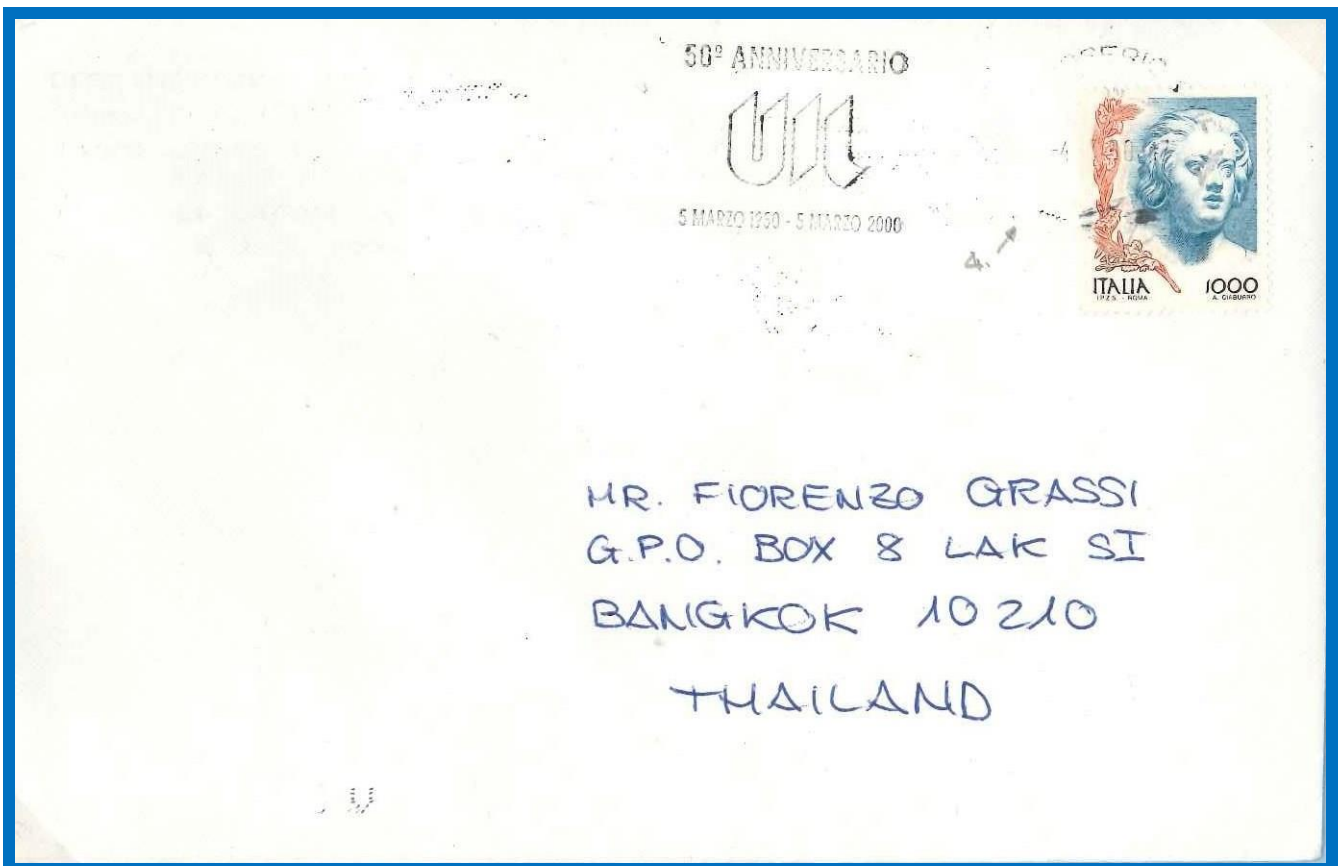 50º ANNIVERSARIO
5 MARZO 1950 - 5 MARZO 2000
4.
ITALIA 1000
I.P.Z.S. - ROMA A. CIABURRO
MR. FIORENZO GRASSI
G.P.O. BOX 8 LAK SI
BANGKOK 10210
THAILAND